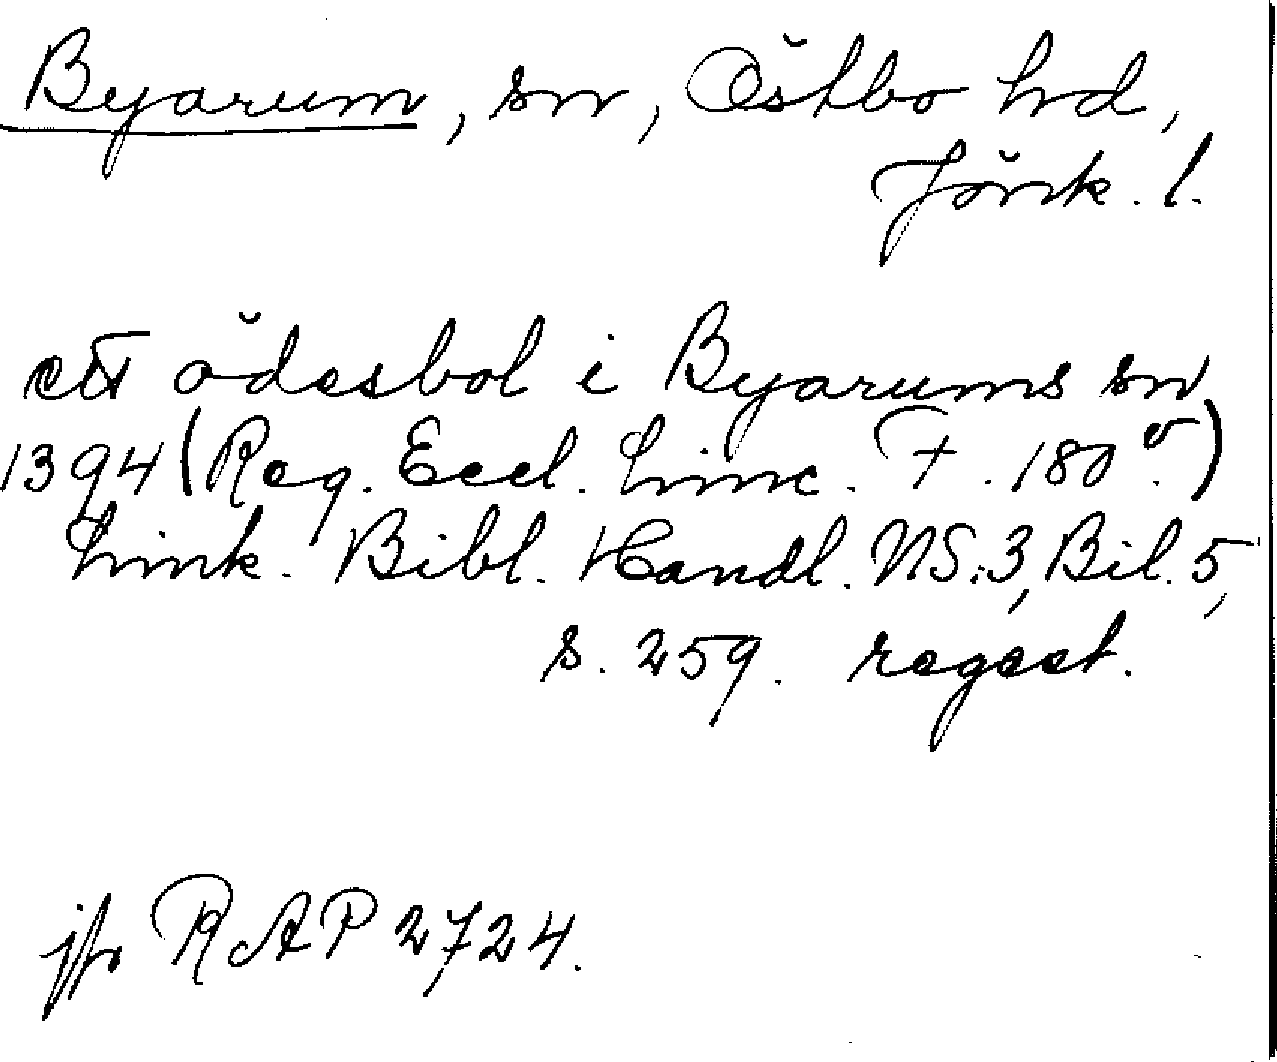 Byarum, sn, Östbo hd,
Jönk. l.
ett ödesbol i Byarums sn
1394 (Reg. Eccl. Linc. F. 180 v.)
Link. Bibl. Handl. NS:3, Bil. 5,
s. 259. regest.
jfr RAP 2724.